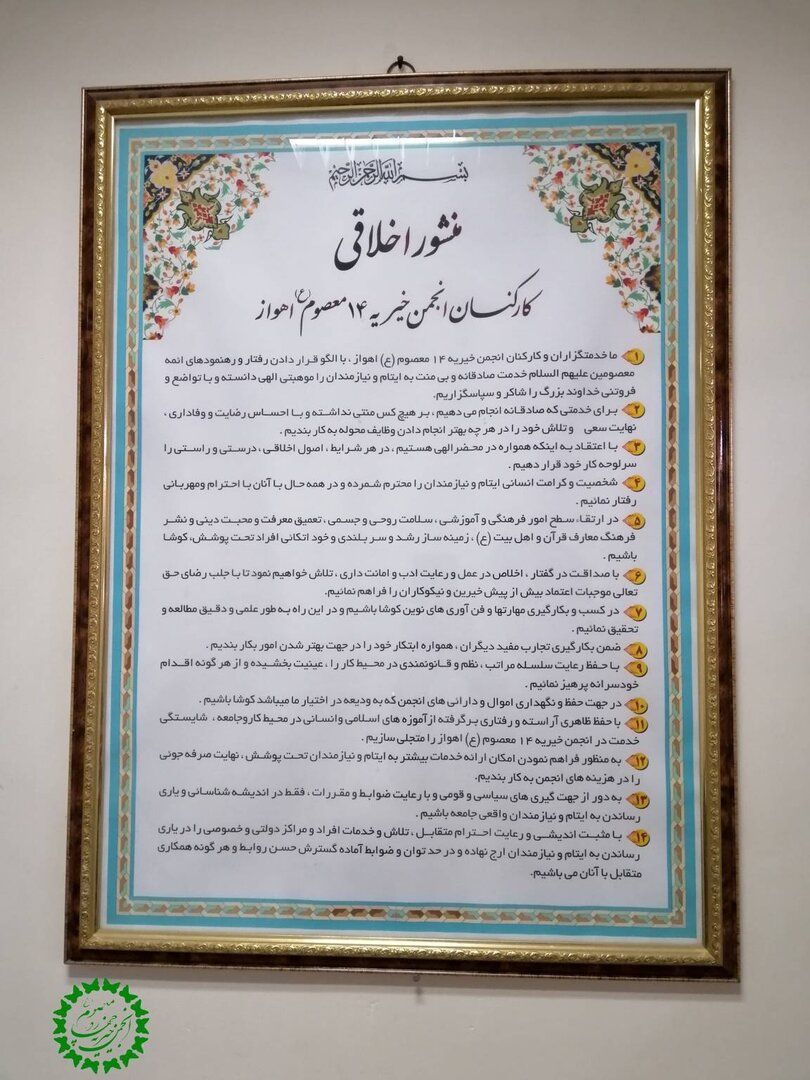 بسم الله الرحمن الرحیم
منشور اخلاقی
کارکنان انجمن خیریه ۱۴ معصوم (ع) اهواز
۱ ما خدمتگزاران و کارکنان انجمن خیریه ۱۴ معصوم (ع) اهواز ، با الگو قرار دادن رفتار و رهنمودهای ائمه
معصومین علیهم السلام خدمت صادقانه و بی منت به ایتام و نیازمندان را موهبتی الهی دانسته و با تواضع و
فروتنی خداوند بزرگ را شاکر و سپاسگزاریم.
۲ برای خدمتی که صادقانه انجام می دهیم ، بر هیچ کس منتی نداشته و با احساس رضایت و وفاداری ،
نهایت سعی و تلاش خود را در هر چه بهتر انجام دادن وظایف محوله به کار بندیم .
۳ با اعتقاد به اینکه همواره در محضر الهی هستیم ، در هر شرایط ، اصول اخلاقی ، درستی و راستی را
سرلوحه کار خود قرار دهیم .
۴ شخصیت و کرامت انسانی ایتام و نیازمندان را محترم شمرده و در همه حال با آنان با احترام ومهربانی
رفتار نمائیم .
۵ در ارتقاء سطح امور فرهنگی و آموزشی ، سلامت روحی و جسمی ، تعمیق معرفت و محبت دینی و نشر
فرهنگ معارف قرآن و اهل بیت (ع) ، زمینه ساز رشد و سر بلندی و خود اتکائی افراد تحت پوشش، کوشا
باشیم .
۶ با صداقت در گفتار ، اخلاص در عمل و رعایت ادب و امانت داری ، تلاش خواهیم نمود تا با جلب رضای حق
تعالی موجبات اعتماد بیش از پیش خیرین و نیکوکاران را فراهم نمائیم.
۷ در کسب و بکارگیری مهارتها و فن آوری های نوین کوشا باشیم و در این راه به طور علمی و دقیق مطالعه و
تحقیق نمائیم .
۸ ضمن بکارگیری تجارب مفید دیگران ، همواره ابتکار خود را در جهت بهتر شدن امور بکار بندیم .
۹ با حفظ رعایت سلسله مراتب ، نظم و قانونمندی در محیط کار را ، عینیت بخشیده و از هر گونه اقدام
خودسرانه پرهیز نمائیم .
۱۰ در جهت حفظ و نگهداری اموال و دارائی های انجمن که به ودیعه در اختیار ما میباشد کوشا باشیم .
۱۱ با حفظ ظاهری آراسته و رفتاری برگرفته ازآموزه های اسلامی و انسانی در محیط کاروجامعه ، شایستگی
خدمت در انجمن خیریه ۱۴ معصوم (ع) اهواز را متجلی سازیم .
۱۲ به منظور فراهم نمودن امکان ارائه خدمات بیشتر به ایتام و نیازمندان تحت پوشش ، نهایت صرفه جوئی
را در هزینه های انجمن به کار بندیم.
۱۳ به دور از جهت گیری های سیاسی و قومی و با رعایت ضوابط و مقررات ، فقط در اندیشه شناسائی و یاری
رساندن به ایتام و نیازمندان واقعی جامعه باشیم .
۱۴ با مثبت اندیشی و رعایت احترام متقابل ، تلاش و خدمات افراد و مراکز دولتی و خصوصی را در یاری
رساندن به ایتام و نیازمندان ارج نهاده و در حد توان و ضوابط آماده گسترش حسن روابط و هر گونه همکاری
متقابل با آنان می باشیم.
انجمن خیریه چهارده معصوم